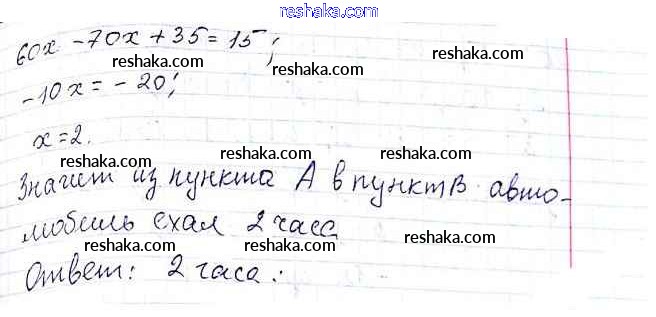 reshaka.com
60x - 70x + 35 = 15;
reshaka.com reshaka.com
-10x = -20;
reshaka.com
x = 2.
reshaka.com reshaka.com
Значит из пункта А в пункт В авто-
reshaka.com
мобиль ехал 2 часа
reshaka.com reshaka.com
Ответ: 2 часа.
reshaka.com
reshaka.com